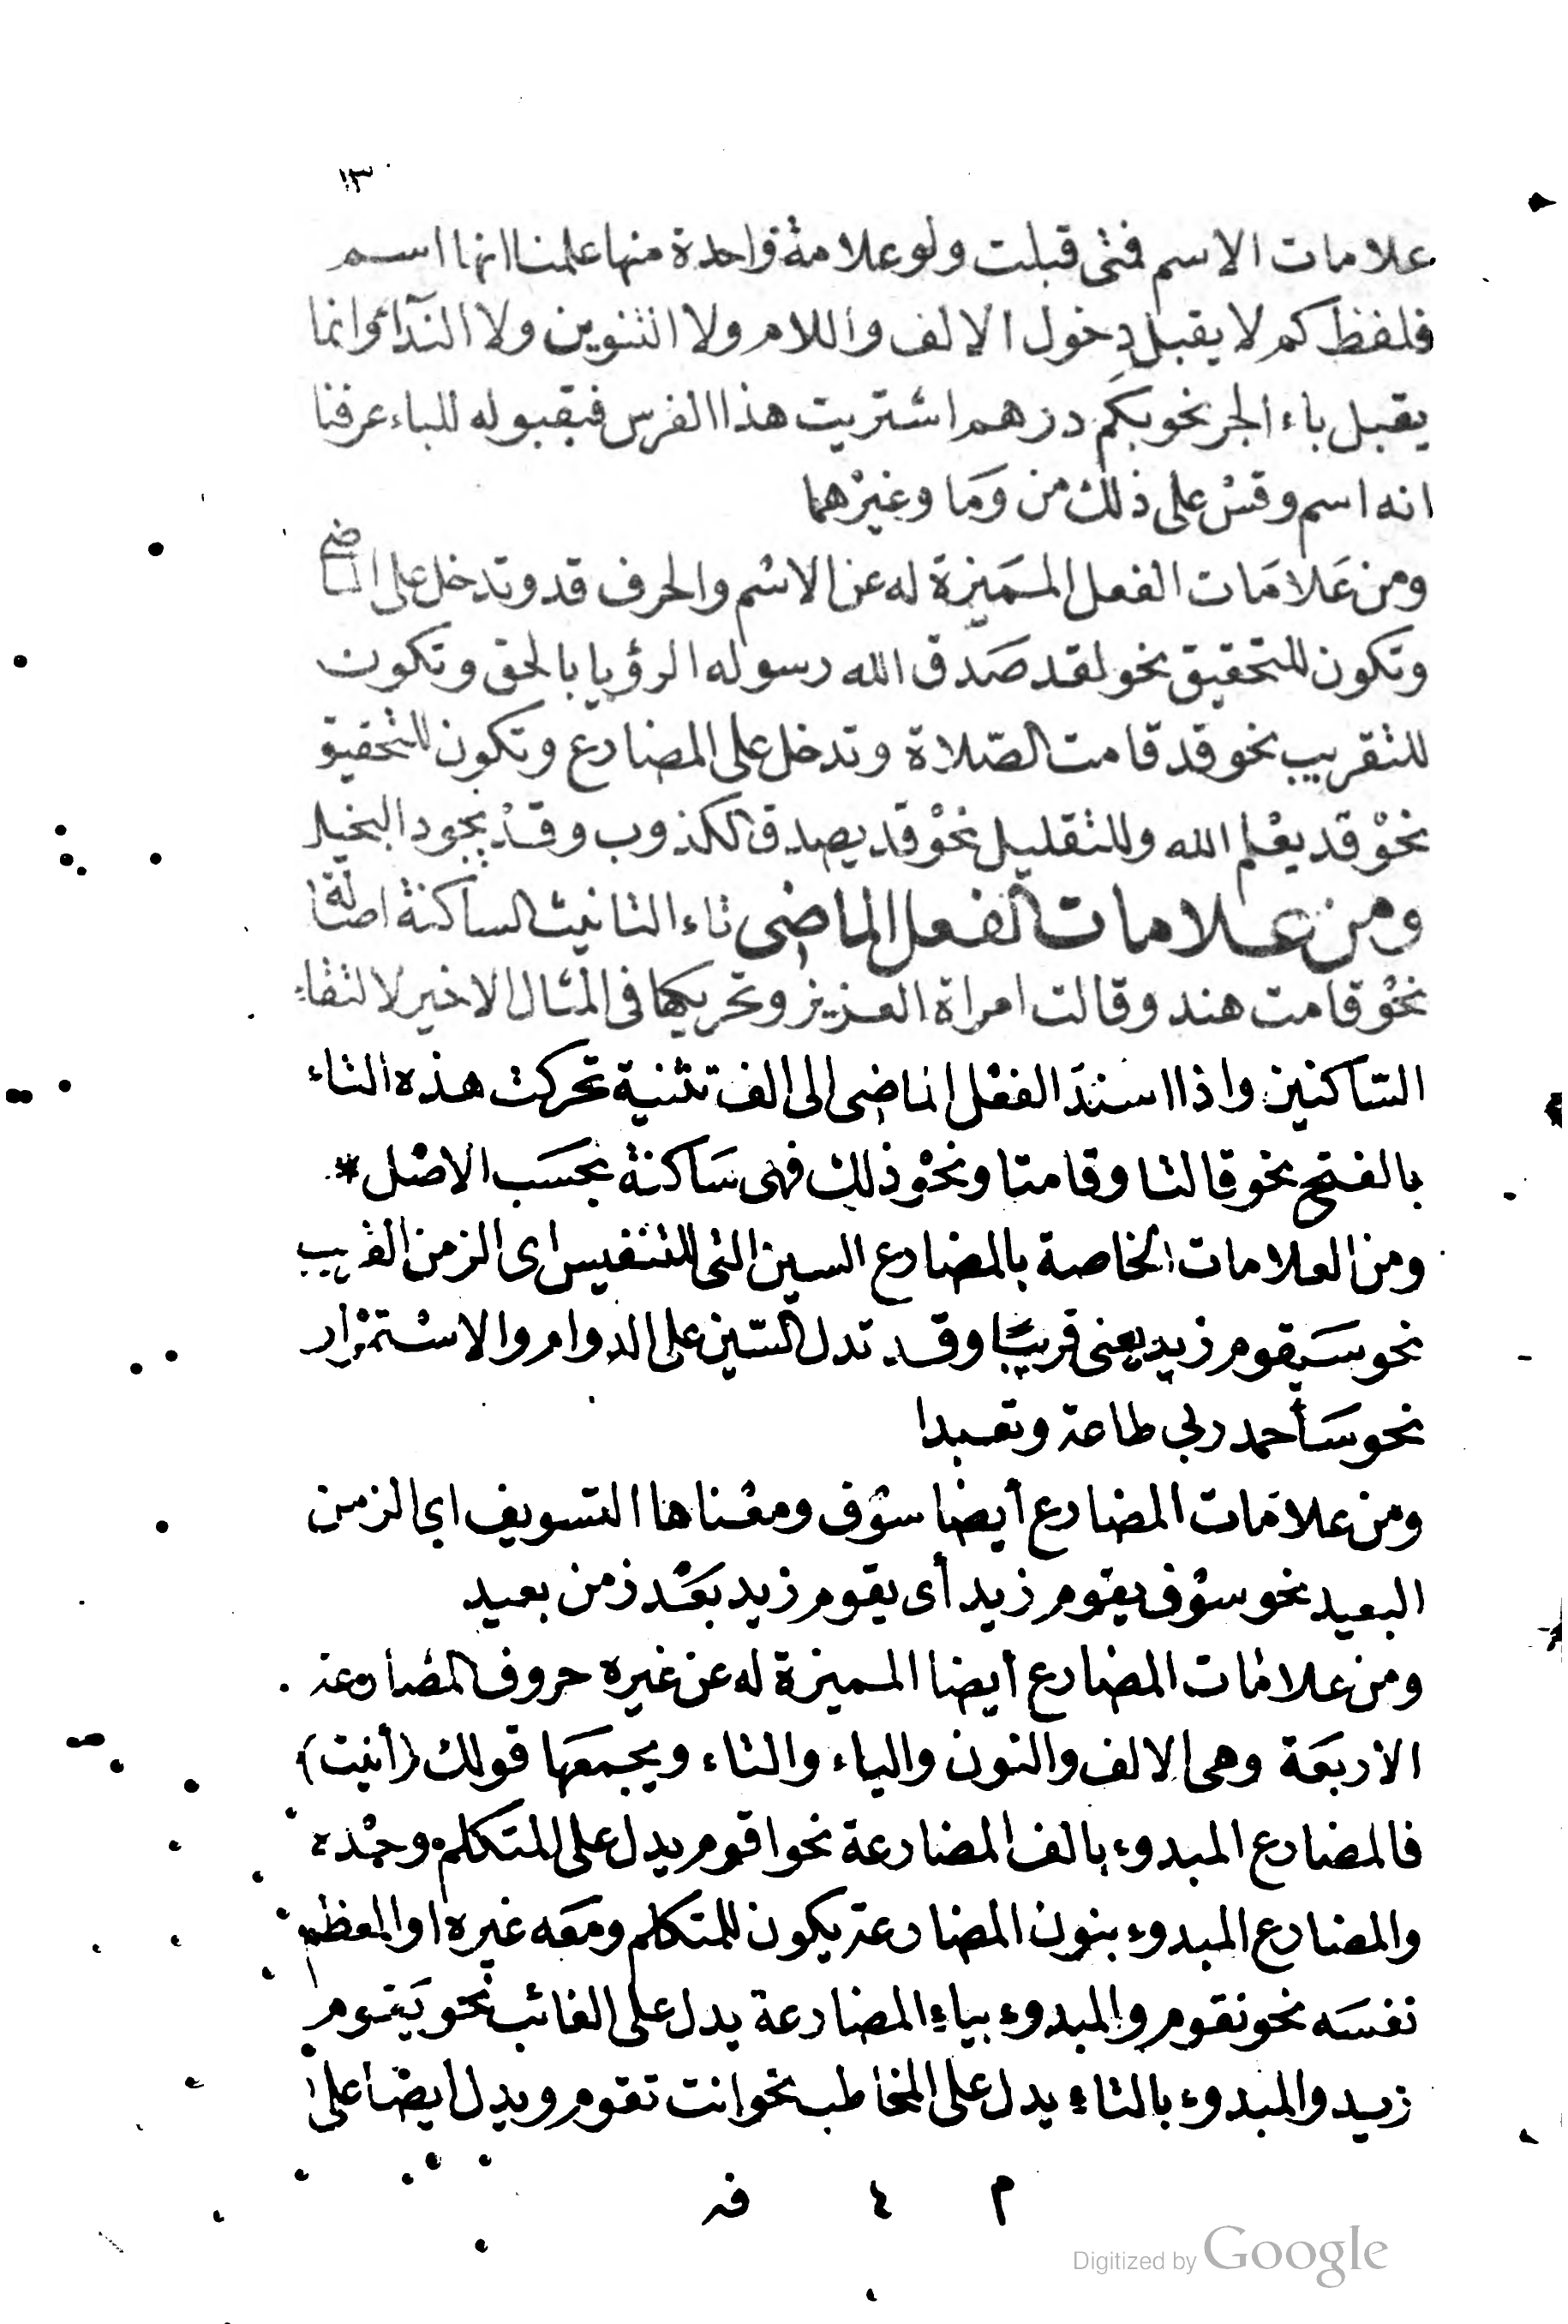 ١٣
علامات الاسم فمتى قبلت ولو علامة واحدة منها علمنا انها اسم
فلفظ كم لا يقبل دخول الالف واللام ولا التنوين ولا النداء وانما
يقبل باء الجر نحو بكم درهم اشتريت هذا الفرس فبقبوله للباء عرفنا
انه اسم وقسْ على ذلك من وَمَا وغيرْهما
ومن عَلامَات الفعل المسَميزة له عن الاسْم والحرف قد وتدخل على الماضى
وتكون للتحقيق نحو لقد صَدق الله رسوله الرؤيا بالحق وتكون
للتقريب نحو قد قامت الصّلاة وتدخل على المضارع وتكون للتحقيق
نحوْ قد يعْلم الله وللتقليل نحوْ قد يصدق الكذوب وقدْ يجود البخيل
ومن علامات الفعل الماضى تاء التانيث الساكنة اصالة
نحوْ قامت هند وقالت امراة العزيز وتحريكها فى المثال الاخير لالتقاء
السّاكنين واذا اسندَ الفعْل الماضى الى الف تثنية تحركت هذه التاء
بالفتح نحو قالتا وقامتا ونحوْ ذلك فهى سَاكنة بحسَب الاصْل *
ومن العلامات الخاصة بالمضارع السين التى للتنفيس اى الزمن القريب
نحو سَيقوم زيد يعنى قريبًا وقد تدل السّين على الدوام والاسْتمرْار
نحو سَأحمد ربي طاعة وتعبدا
ومن علامَات المضارع أيضا سوْف ومعْناها التسويف اي الزمن
البعيد نحو سوْف يقوم زيد أى يقوم زيد بَعْد زمن بعيد
ومن علامَات المضارع أيضا المميزة له عن غيره حروف المضارعة
الاربَعَة وهى الالف والنون والياء والتاء ويجمَعَها قولك (أنيت)
فالمضارع المبدوء بالف المضارعة نحو اقوم يدل على المتكلم وحْده
والمضارع المبدوء بنون المضارعة يكون للمتكلم ومَعَه غيره او المعظم
نفسَه نحو نقوم والمبدوء بياء المضارعة يدل على الغائب نحو يَقوم
زيد والمبدوء بالتاء يدل على المخاطب نحو انت تقوم ويدل ايضا على
م ٤ فه
Digitized by Google